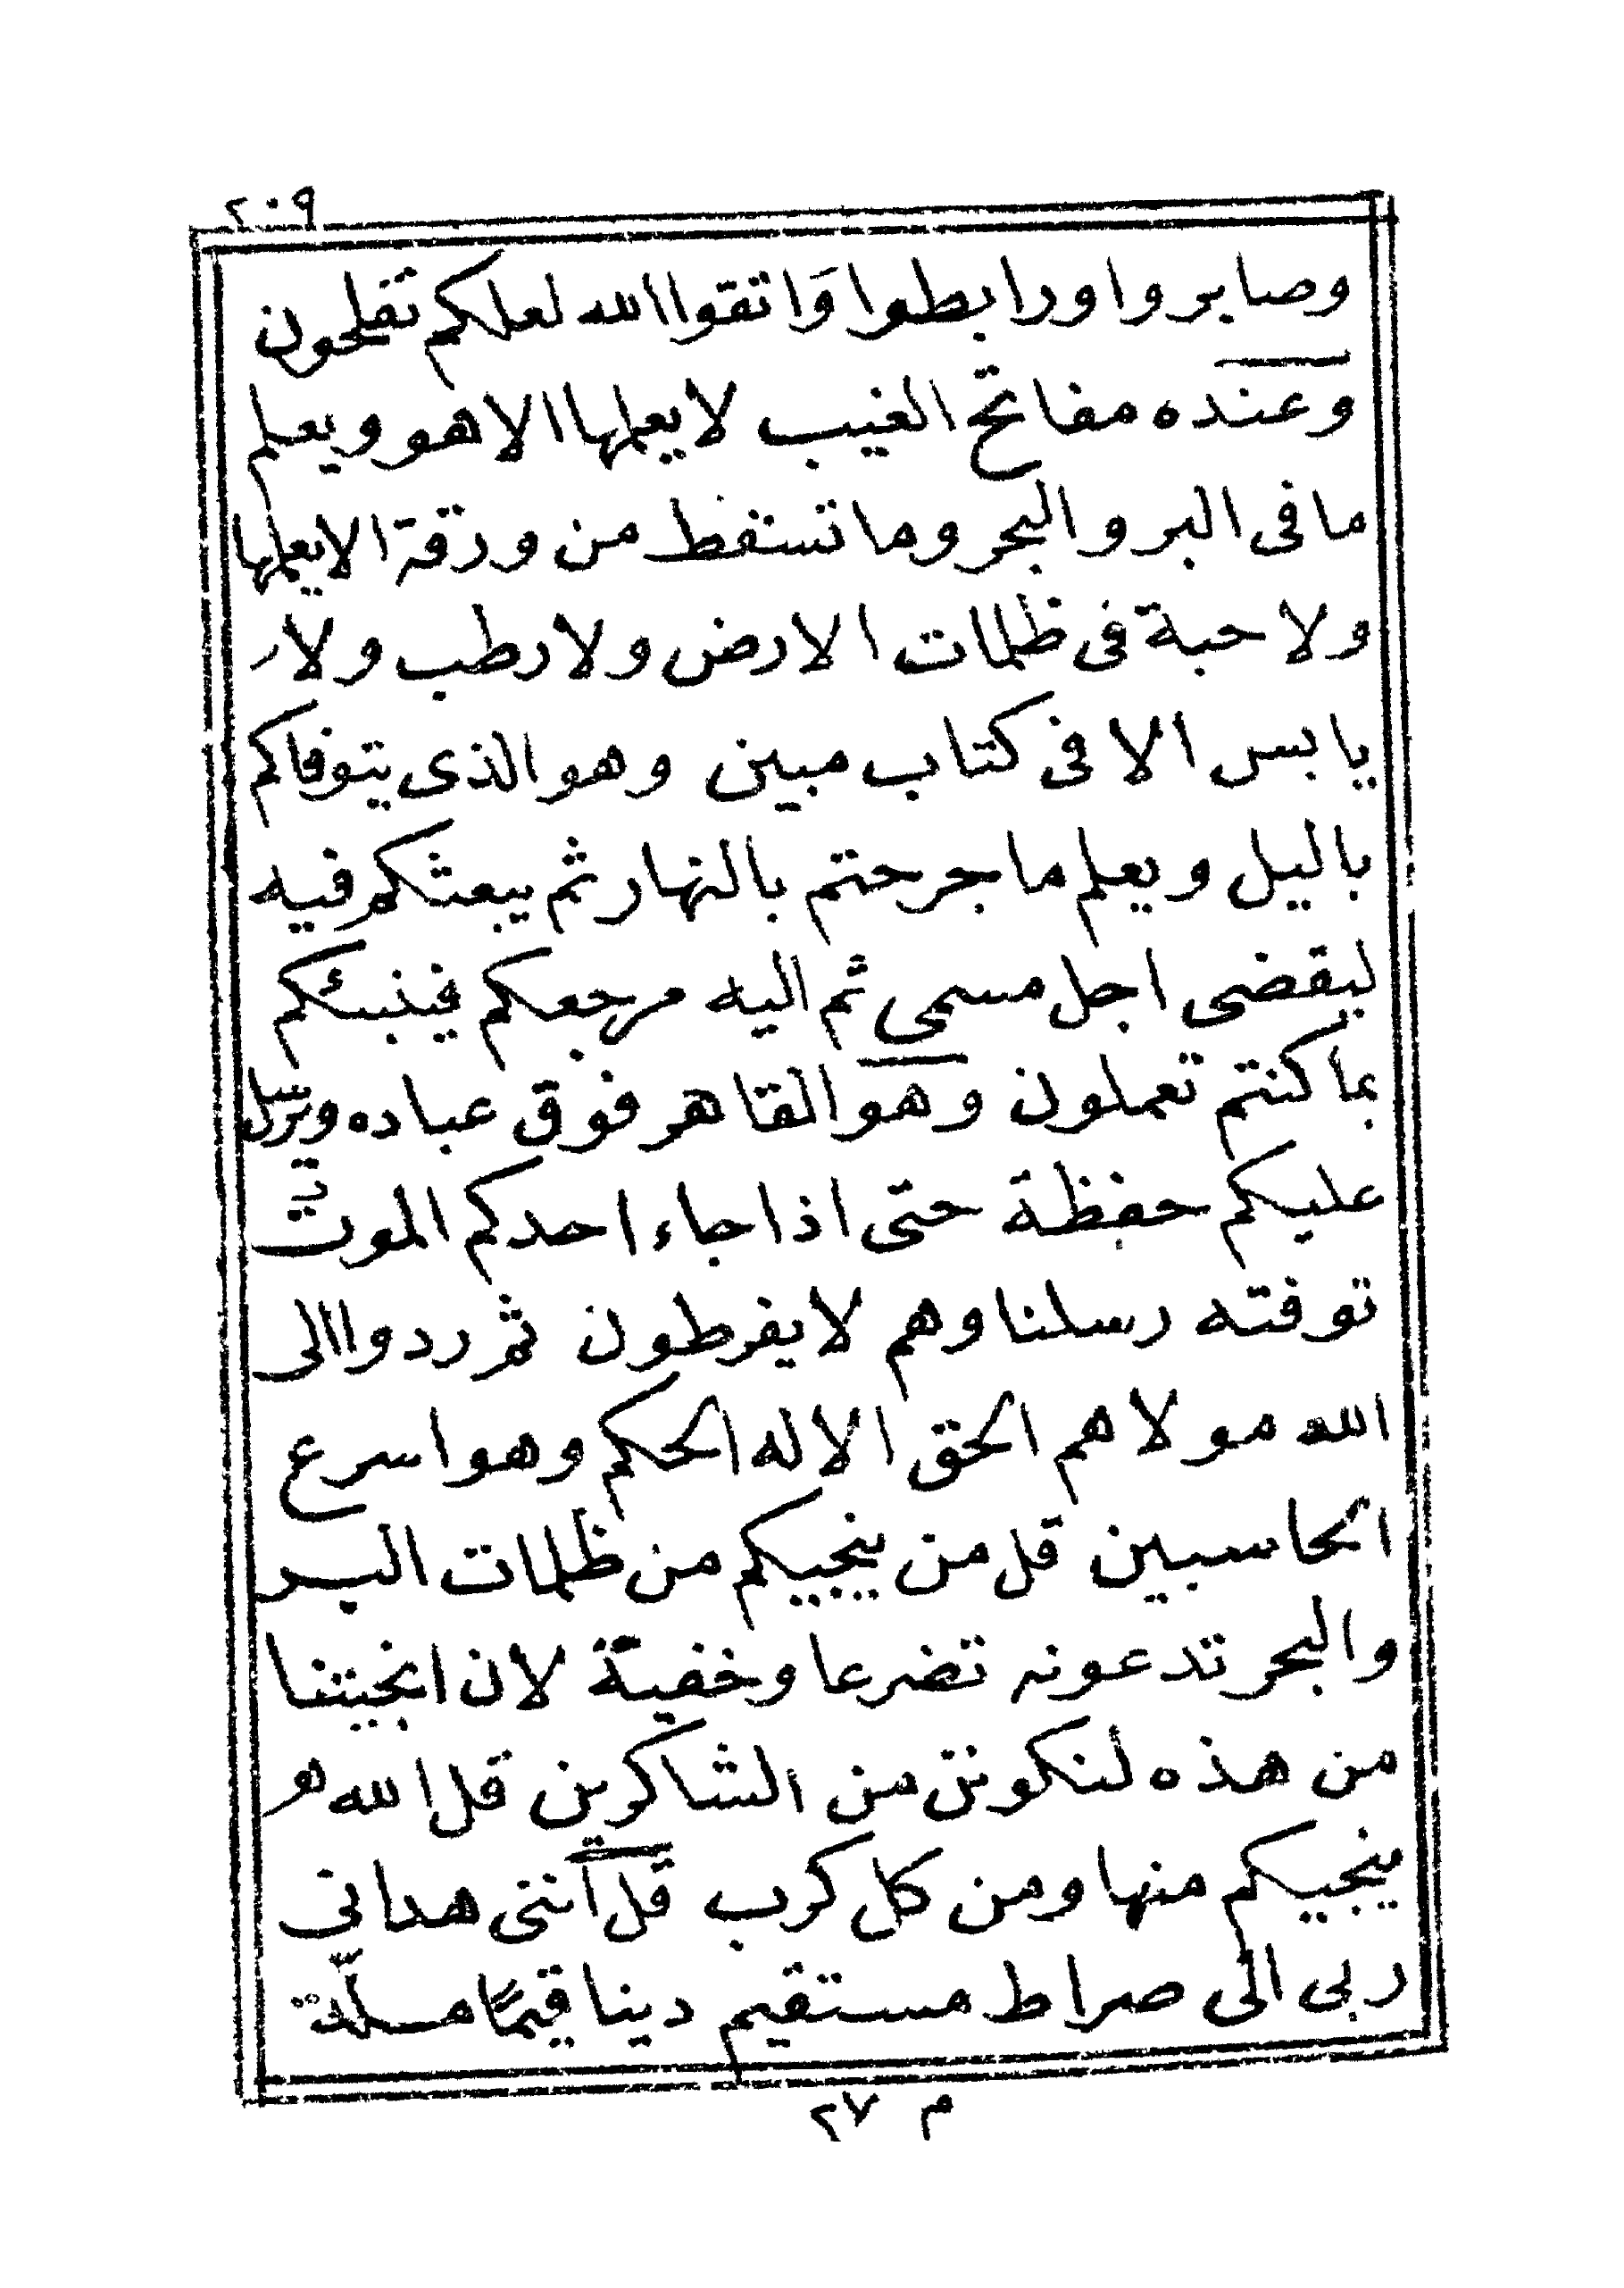 ٢٠٩
وصابروا ورابطوا وَاتقوا الله لعلكم تفلحون
وعنده مفاتح الغيب لا يعلمها الا هو ويعلم
ما فى البر والبحر وما تسقط من ورقة الا يعلمها
ولا حبة فى ظلمات الارض ولا رطب ولا ر
يابس الا فى كتاب مبين وهو الذى يتوفاكم
بالليل ويعلم ما جرحتم بالنهار ثم يبعثكم فيه
ليقضى اجل مسمى ثم اليه مرجعكم فينبئكم
بما كنتم تعملون وهو القاهر فوق عباده ويرسل
عليكم حفظة حتى اذا جاء احدكم الموت
توفته رسلنا وهم لا يفرطون ثم ردوا الى
الله مولاهم الحق الا له الحكم وهو اسرع
الحاسبين قل من ينجيكم من ظلمات البر
والبحر تدعونه تضرعا وخفية لان انجيتنا
من هذه لنكونن من الشاكرين قل الله هو
ينجيكم منها ومن كل كرب قل اننى هدانى
ربى الى صراط مستقيم دينا قيمًا ملّة
م ٢٧